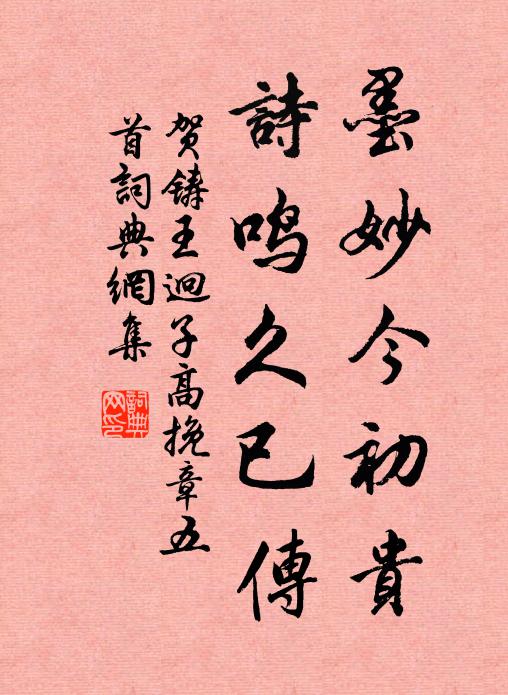 墨妙今初貴
詩鳴久已傳
贺鑄王迥子高挽章五
首詞典網集
詞典网印